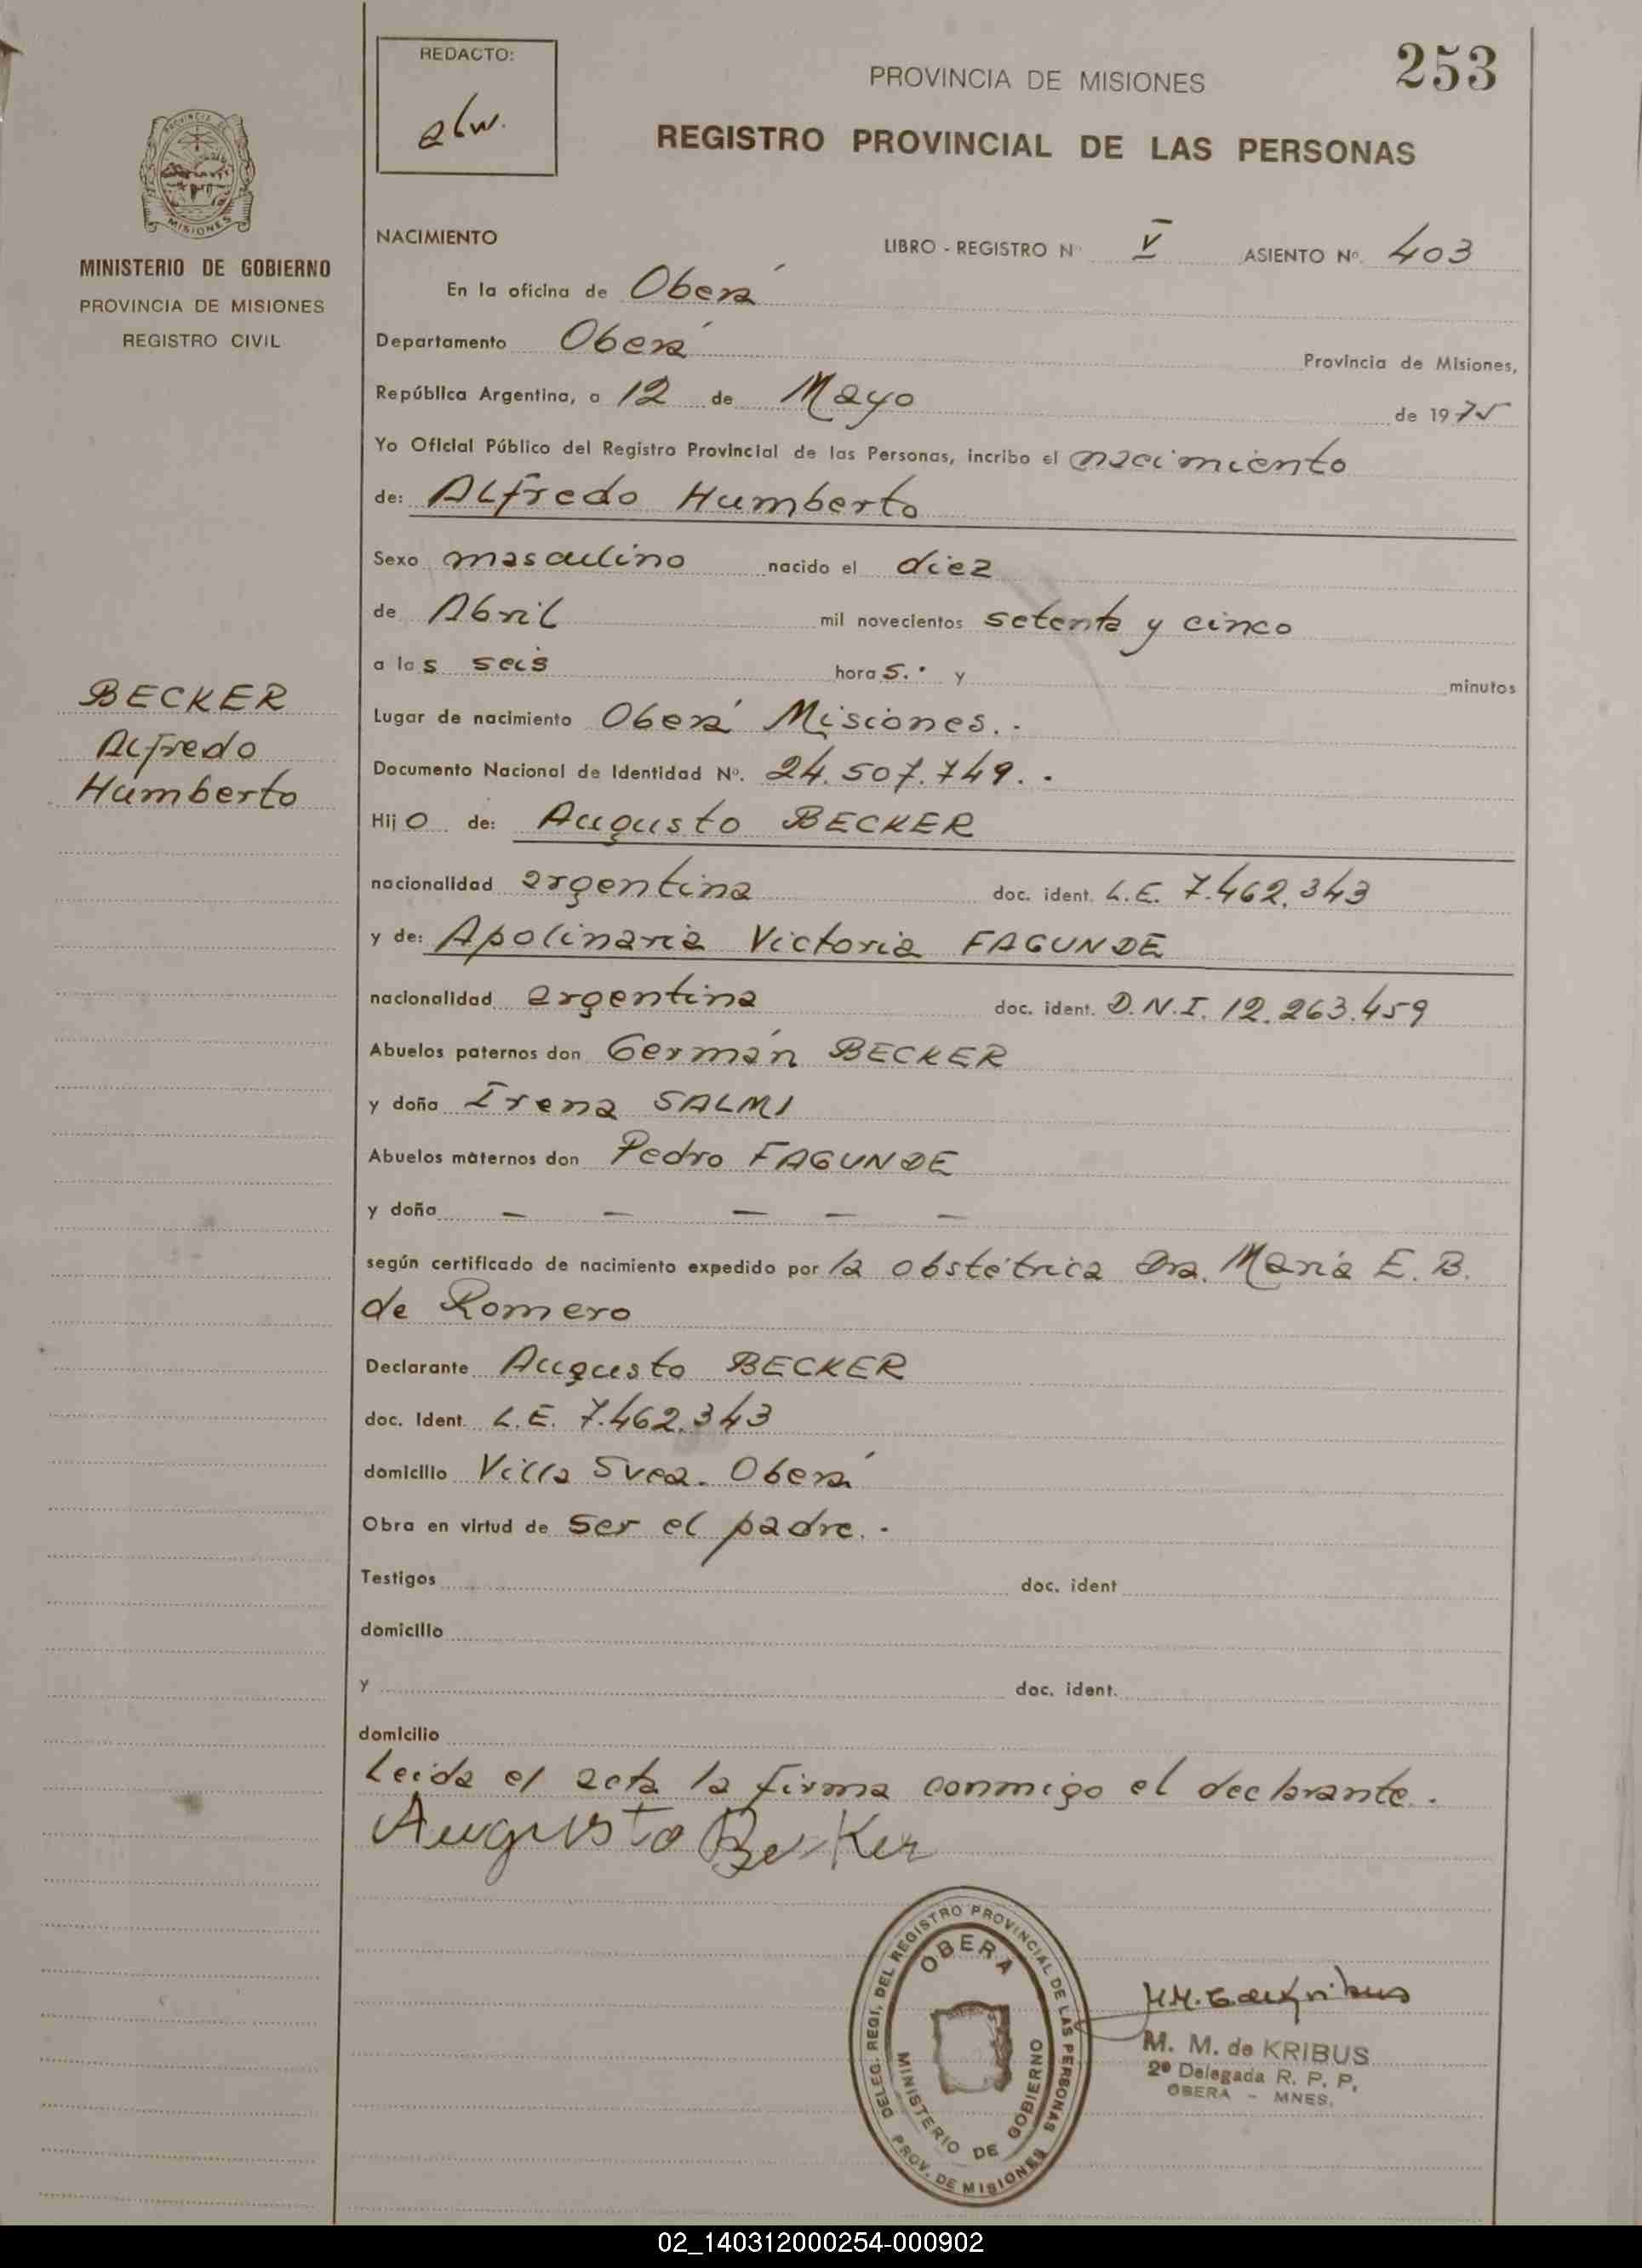 REDACTO:
PROVINCIA DE MISIONES
253
REGISTRO PROVINCIAL DE LAS PERSONAS
MISIONES
MINISTERIO DE GOBIERNO
PROVINCIA DE MISIONES
REGISTRO CIVIL
NACIMIENTO
LIBRO - REGISTRO Nº V ASIENTO Nº. 403
En la oficina de Oberá
Departamento Oberá Provincia de Misiones,
República Argentina, a 12 de Mayo de 1975
Yo Oficial Público del Registro Provincial de las Personas, incribo el nacimiento
de: Alfredo Humberto
Sexo masculino nacido el diez
de Abril mil novecientos setenta y cinco
a las seis horas.- y minutos
BECKER
Alfredo
Humberto
Lugar de nacimiento Oberá Misiones.-
Documento Nacional de Identidad Nº. 24.507.749.-
Hijo de: Augusto BECKER
nacionalidad argentina doc. ident. L.E. 7.462.343
y de: Apolinaria Victoria FAGUNDE
nacionalidad argentina doc. ident. D.N.I. 12.263.459
Abuelos paternos don Germán BECKER
y doña Irena SALMI
Abuelos maternos don Pedro FAGUNDE
y doña - - - - -
según certificado de nacimiento expedido por la obstétrica Dra. María E. B.
de Romero
Declarante Augusto BECKER
doc. Ident. L.E. 7.462.343
domicilio Villa Svea. Oberá
Obra en virtud de ser el padre.-
Testigos doc. ident
domicilio
y doc. ident.
domicilio
Leída el acta la firma conmigo el declarante.
Augusto Becker
DELEG. REGI. DEL REGISTRO PROVINCIAL DE LAS PERSONAS
OBERA
MINISTERIO DE GOBIERNO
PROV. DE MISIONES
M. M. de KRIBUS
2º Delegada R. P. P.
OBERA - MNES.
02_140312000254-000902